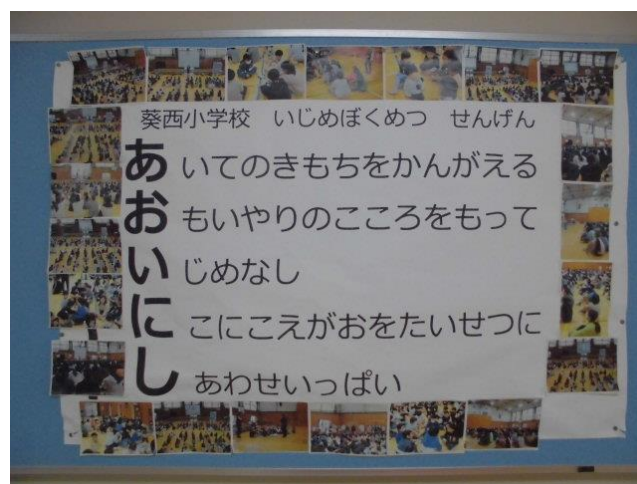 葵西小学校 いじめぼくめつ せんげん
あいてのきもちをかんがえる
おもいやりのこころをもって
いじめなし
にこにこえがおをたいせつに
しあわせいっぱい